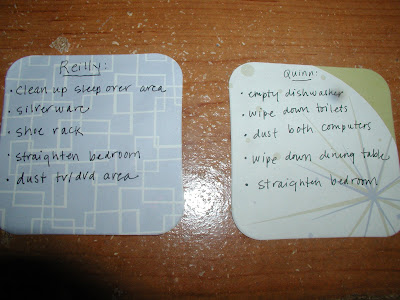 Reilly:
• Clean up sleep over area
• silverware
• shoe rack
• straighten bedroom
• dust tv/dvd area
Quinn:
• empty dishwasher
• wipe down toilets
• dust both computers
• wipe down dining table
• straighten bedroom